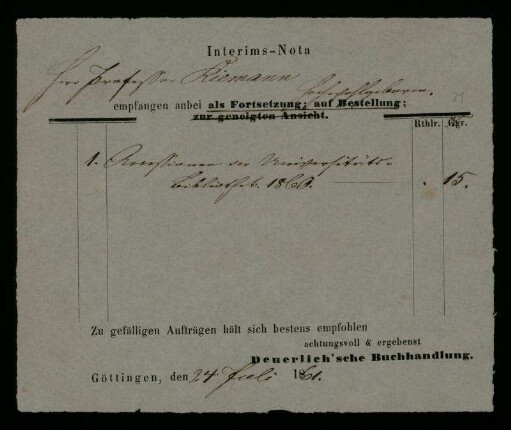 Interims-Nota
Herr Professor Riemann
Hochwohlgeboren.
empfangen anbei als Fortsetzung; auf Bestellung;
zur geneigten Ansicht.
Rthlr. Ggr.
1. Accessionen der Universitäts-
bibliothek. 1860. . 15.
Zu gefälligen Aufträgen hält sich bestens empfohlen
achtungsvoll & ergebenst
Deuerlich'sche Buchhandlung.
Göttingen, den 24 Juli 1861.